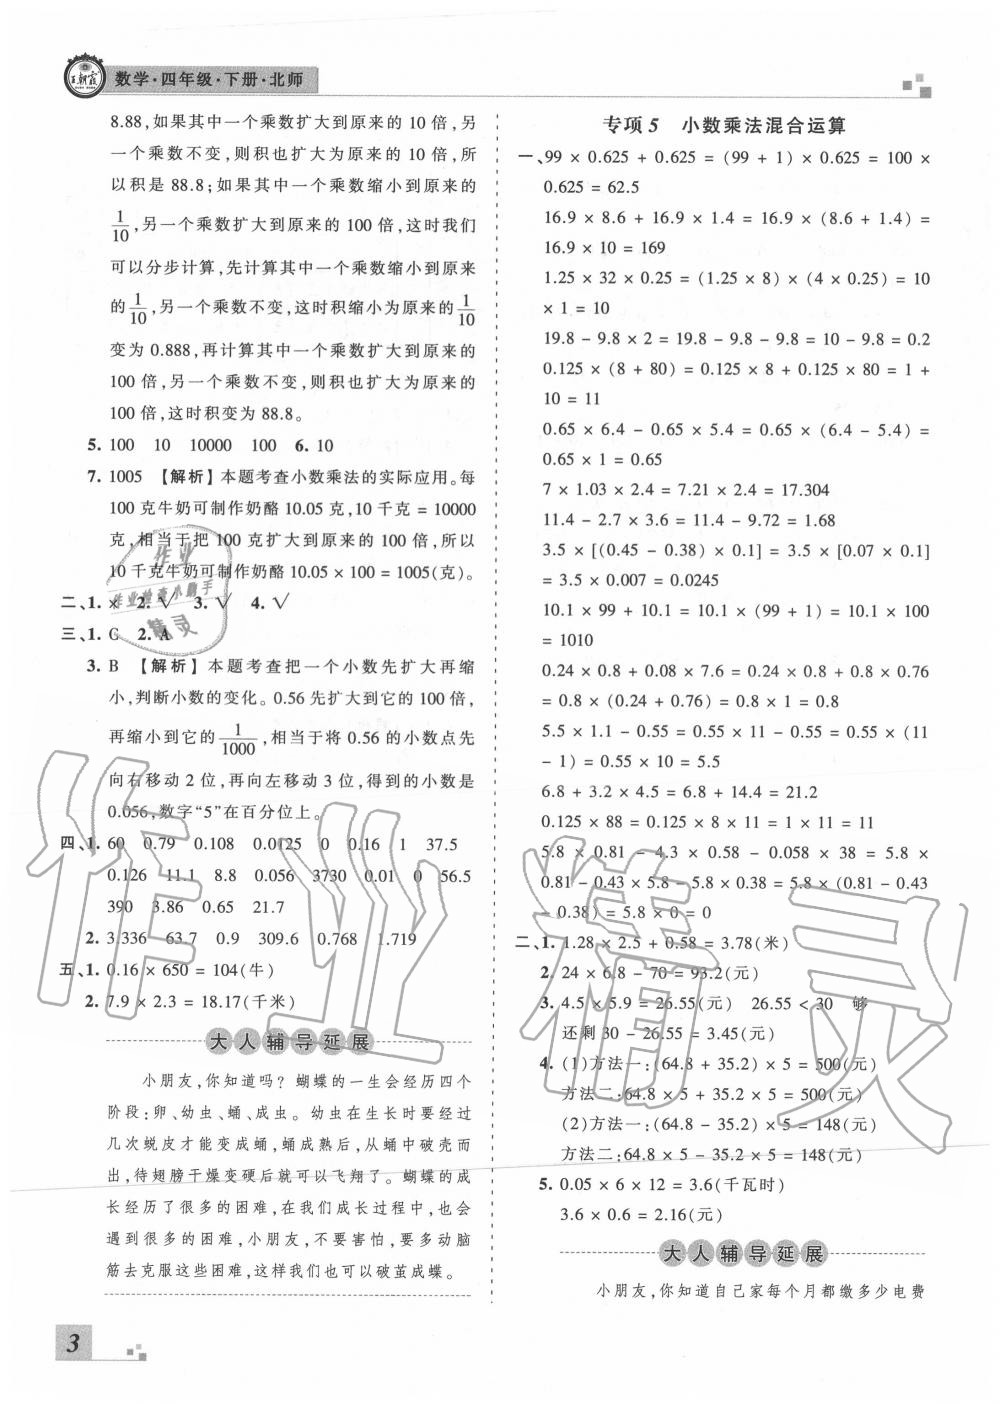 王朝霞
数学·四年级·下册·北师
8.88,如果其中一个乘数扩大到原来的 10 倍,另
一个乘数不变,则积也扩大为原来的 10 倍,所
以积是 88.8;如果其中一个乘数缩小到原来的
1/10,另一个乘数扩大到原来的 100 倍,这时我们
可以分步计算,先计算其中一个乘数缩小到原来
的 1/10,另一个乘数不变,这时积缩小为原来的 1/10
变为 0.888,再计算其中一个乘数扩大到原来的
100 倍,另一个乘数不变,则积也扩大为原来的
100 倍,这时积变为 88.8。
5. 100 10 10000 100 6. 10
7. 1005 【解析】本题考查小数乘法的实际应用。每
100 克牛奶可制作奶酪 10.05 克,10 千克 = 10000
克,相当于把 100 克扩大到原来的 100 倍,所以
10 千克牛奶可制作奶酪 10.05 × 100 = 1005(克)。
二、1. × 2. √ 3. √ 4. √
三、1. C 2. A
3. B 【解析】本题考查把一个小数先扩大再缩
小,判断小数的变化。0.56 先扩大到它的 100 倍,
再缩小到它的 1/1000,相当于将 0.56 的小数点先
向右移动 2 位,再向左移动 3 位,得到的小数是
0.056,数字“5”在百分位上。
四、1. 60 0.79 0.108 0.0125 0 0.16 1 37.5
0.126 11.1 8.8 0.056 3730 0.01 0 56.5
390 3.86 0.65 21.7
2. 3.336 63.7 0.9 309.6 0.768 1.719
五、1. 0.16 × 650 = 104(牛)
2. 7.9 × 2.3 = 18.17(千米)
大人辅导延展
小朋友,你知道吗?蝴蝶的一生会经历四个
阶段:卵、幼虫、蛹、成虫。幼虫在生长时要经过
几次蜕皮才能变成蛹,蛹成熟后,从蛹中破壳而
出,待翅膀干燥变硬后就可以飞翔了。蝴蝶的成
长经历了很多的困难,在我们成长过程中,也会
遇到很多的困难,小朋友,不要害怕,要多动脑
筋去克服这些困难,这样我们也可以破茧成蝶。
专项 5 小数乘法混合运算
一、99 × 0.625 + 0.625 = (99 + 1) × 0.625 = 100 ×
0.625 = 62.5
16.9 × 8.6 + 16.9 × 1.4 = 16.9 × (8.6 + 1.4) =
16.9 × 10 = 169
1.25 × 32 × 0.25 = (1.25 × 8) × (4 × 0.25) = 10
× 1 = 10
19.8 - 9.8 × 2 = 19.8 - 9.8 - 9.8 = 10 - 9.8 = 0.2
0.125 × (8 + 80) = 0.125 × 8 + 0.125 × 80 = 1 +
10 = 11
0.65 × 6.4 - 0.65 × 5.4 = 0.65 × (6.4 - 5.4) =
0.65 × 1 = 0.65
7 × 1.03 × 2.4 = 7.21 × 2.4 = 17.304
11.4 - 2.7 × 3.6 = 11.4 - 9.72 = 1.68
3.5 × [(0.45 - 0.38) × 0.1] = 3.5 × [0.07 × 0.1]
= 3.5 × 0.007 = 0.0245
10.1 × 99 + 10.1 = 10.1 × (99 + 1) = 10.1 × 100
= 1010
0.24 × 0.8 + 0.08 × 7.6 = 0.24 × 0.8 + 0.8 × 0.76
= 0.8 × (0.24 + 0.76) = 0.8 × 1 = 0.8
5.5 × 1.1 - 0.55 = 0.55 × 11 - 0.55 = 0.55 × (11
- 1) = 0.55 × 10 = 5.5
6.8 + 3.2 × 4.5 = 6.8 + 14.4 = 21.2
0.125 × 88 = 0.125 × 8 × 11 = 1 × 11 = 11
5.8 × 0.81 - 4.3 × 0.58 - 0.058 × 38 = 5.8 ×
0.81 - 0.43 × 5.8 - 5.8 × 0.38 = 5.8 × (0.81 - 0.43
- 0.38) = 5.8 × 0 = 0
二、1. 1.28 × 2.5 + 0.58 = 3.78(米)
2. 24 × 6.8 - 70 = 93.2(元)
3. 4.5 × 5.9 = 26.55(元) 26.55 < 30 够
还剩 30 - 26.55 = 3.45(元)
4. (1)方法一:(64.8 + 35.2) × 5 = 500(元)
方法二:64.8 × 5 + 35.2 × 5 = 500(元)
(2)方法一:(64.8 - 35.2) × 5 = 148(元)
方法二:64.8 × 5 - 35.2 × 5 = 148(元)
5. 0.05 × 6 × 12 = 3.6(千瓦时)
3.6 × 0.6 = 2.16(元)
大人辅导延展
小朋友,你知道自己家每个月都缴多少电费
3
作业
作业检查小助手
精灵
作业精灵